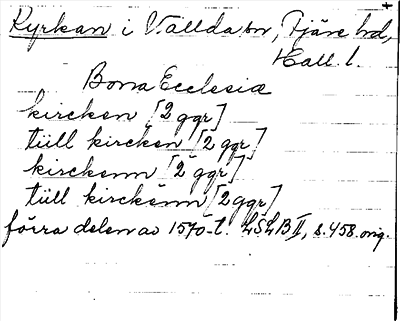 Kyrkan i Vallda sn, Fjäre hd,
Hall. l.
Bona Ecclesiæ
kircken [2 ggr]
tüll kircken [2 ggr]
kirckenn [2 ggr]
tüll kirckenn [2 ggr]
förra delen av 1570-t. LSLB II, s. 458. orig.